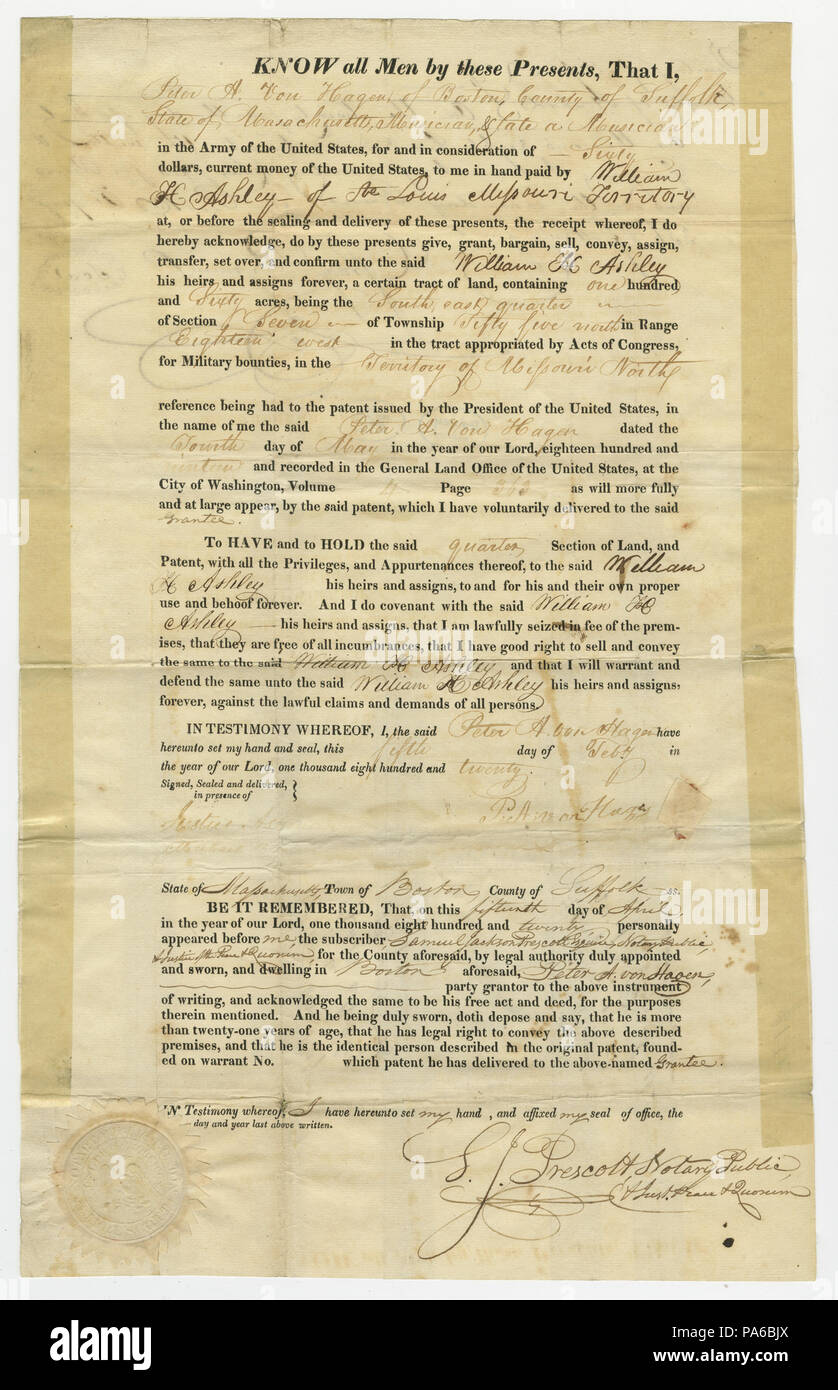 KNOW all Men by these Presents, That I,
Peter A. Von Hagen, of Boston, County of Suffolk,
State of Massachusetts, Musician, & late a Musician
in the Army of the United States, for and in consideration of Sixty
dollars, current money of the United States, to me in hand paid by William
H Ashley of St Louis Missouri Territory
at, or before the sealing and delivery of these presents, the receipt whereof, I do
hereby acknowledge, do by these presents give, grant, bargain, sell, convey, assign,
transfer, set over, and confirm unto the said William H Ashley
his heirs and assigns forever, a certain tract of land, containing one hundred
and Sixty acres, being the South east quarter
of Section Seven of Township fifty five north in Range
Eighteen west in the tract appropriated by Acts of Congress,
for Military bounties, in the Territory of Missouri North
reference being had to the patent issued by the President of the United States, in
the name of me the said Peter. A. Von Hagen dated the
Fourth day of May in the year of our Lord, eighteen hundred and
and recorded in the General Land Office of the United States, at the
City of Washington, Volume Page as will more fully
and at large appear, by the said patent, which I have voluntarily delivered to the said
Grantee.
To HAVE and to HOLD the said quarter Section of Land, and
Patent, with all the Privileges, and Appurtenances thereof, to the said William
H Ashley his heirs and assigns, to and for his and their own proper
use and behoof forever. And I do covenant with the said William H
Ashley his heirs and assigns, that I am lawfully seized in fee of the prem-
ises, that they are free of all incumbrances, that I have good right to sell and convey
the same to the said William H Ashley, and that I will warrant and
defend the same unto the said William H Ashley his heirs and assigns,
forever, against the lawful claims and demands of all persons.
IN TESTIMONY WHEREOF, I, the said Peter A. von Hagen have
hereunto set my hand and seal, this fifth day of Feby in
the year of our Lord, one thousand eight hundred and twenty.
Signed, Sealed and delivered,
in presence of
P. A. von Hagen
Justus
State of Massachusetts, Town of Boston County of Suffolk ss.
BE IT REMEMBERED, That, on this fifteenth day of April
in the year of our Lord, one thousand eight hundred and twenty personally
appeared before me, the subscriber Samuel Jackson Prescott Notary Public,
& Justice Peace & Quorum, for the County aforesaid, by legal authority duly appointed
and sworn, and dwelling in Boston aforesaid, Peter A. von Hagen,
party grantor to the above instrument
of writing, and acknowledged the same to be his free act and deed, for the purposes
therein mentioned. And he being duly sworn, doth depose and say, that he is more
than twenty-one years of age, that he has legal right to convey the above described
premises, and that he is the identical person described in the original patent, found-
ed on warrant No. which patent he has delivered to the above-named Grantee.
IN Testimony whereof, I have hereunto set my hand, and affixed my seal of office, the
day and year last above written.
S. J. Prescott Notary Public
& Just. Peace & Quorum
alamy
Image ID: PA6BJX
www.alamy.com